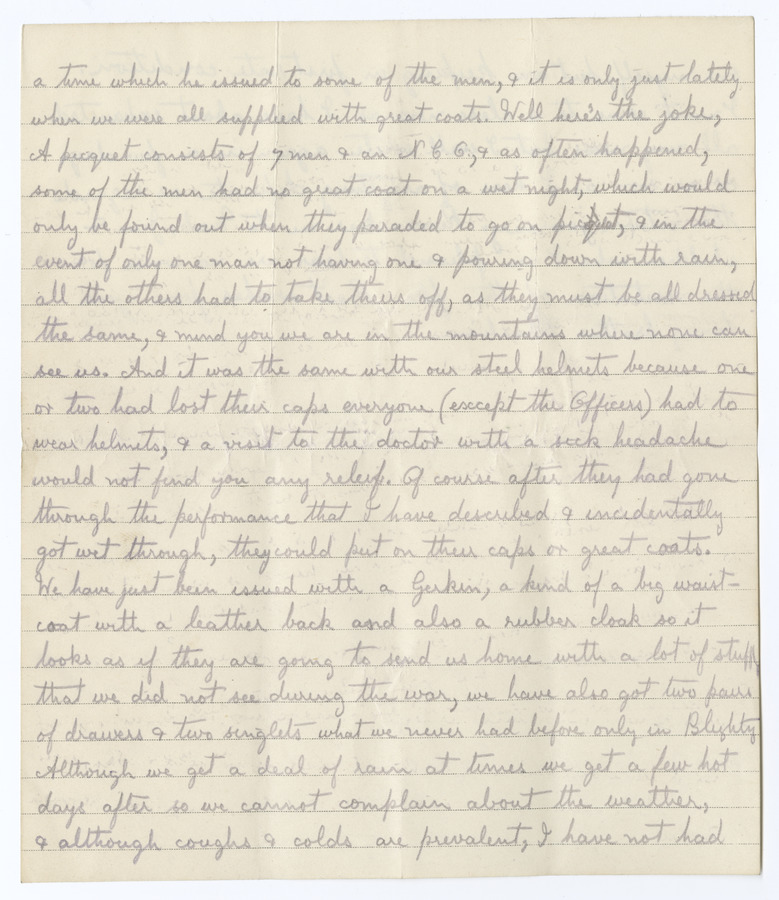 a time which he issued to some of the men, & it is only just lately
when we were all supplied with great coats. Well here's the joke,
A picquet consists of 7 men & an N C O, & as often happened,
some of the men had no great coat on a wet night, which would
only be found out when they paraded to go on picquet, & in the
event of only one man not having one & pouring down with rain,
all the others had to take theirs off, as they must be all dressed
the same, & mind you we are in the mountains where none can
see us. And it was the same with our steel helmets because one
or two had lost their caps everyone (except the Officers) had to
wear helmets, & a visit to the doctor with a sick headache
would not find you any relief. Of course after they had gone
through the performance that I have described & incidentally
got wet through, they could put on their caps or great coats.
We have just been issued with a Gerkin, a kind of a big waist-
coat with a leather back and also a rubber cloak so it
looks as if they are going to send us home with a lot of stuff
that we did not see during the war, we have also got two pairs
of drawers & two singlets what we never had before only in Blighty
Although we get a deal of rain at times we get a few hot
days after so we cannot complain about the weather,
& although coughs & colds are prevalent, I have not had